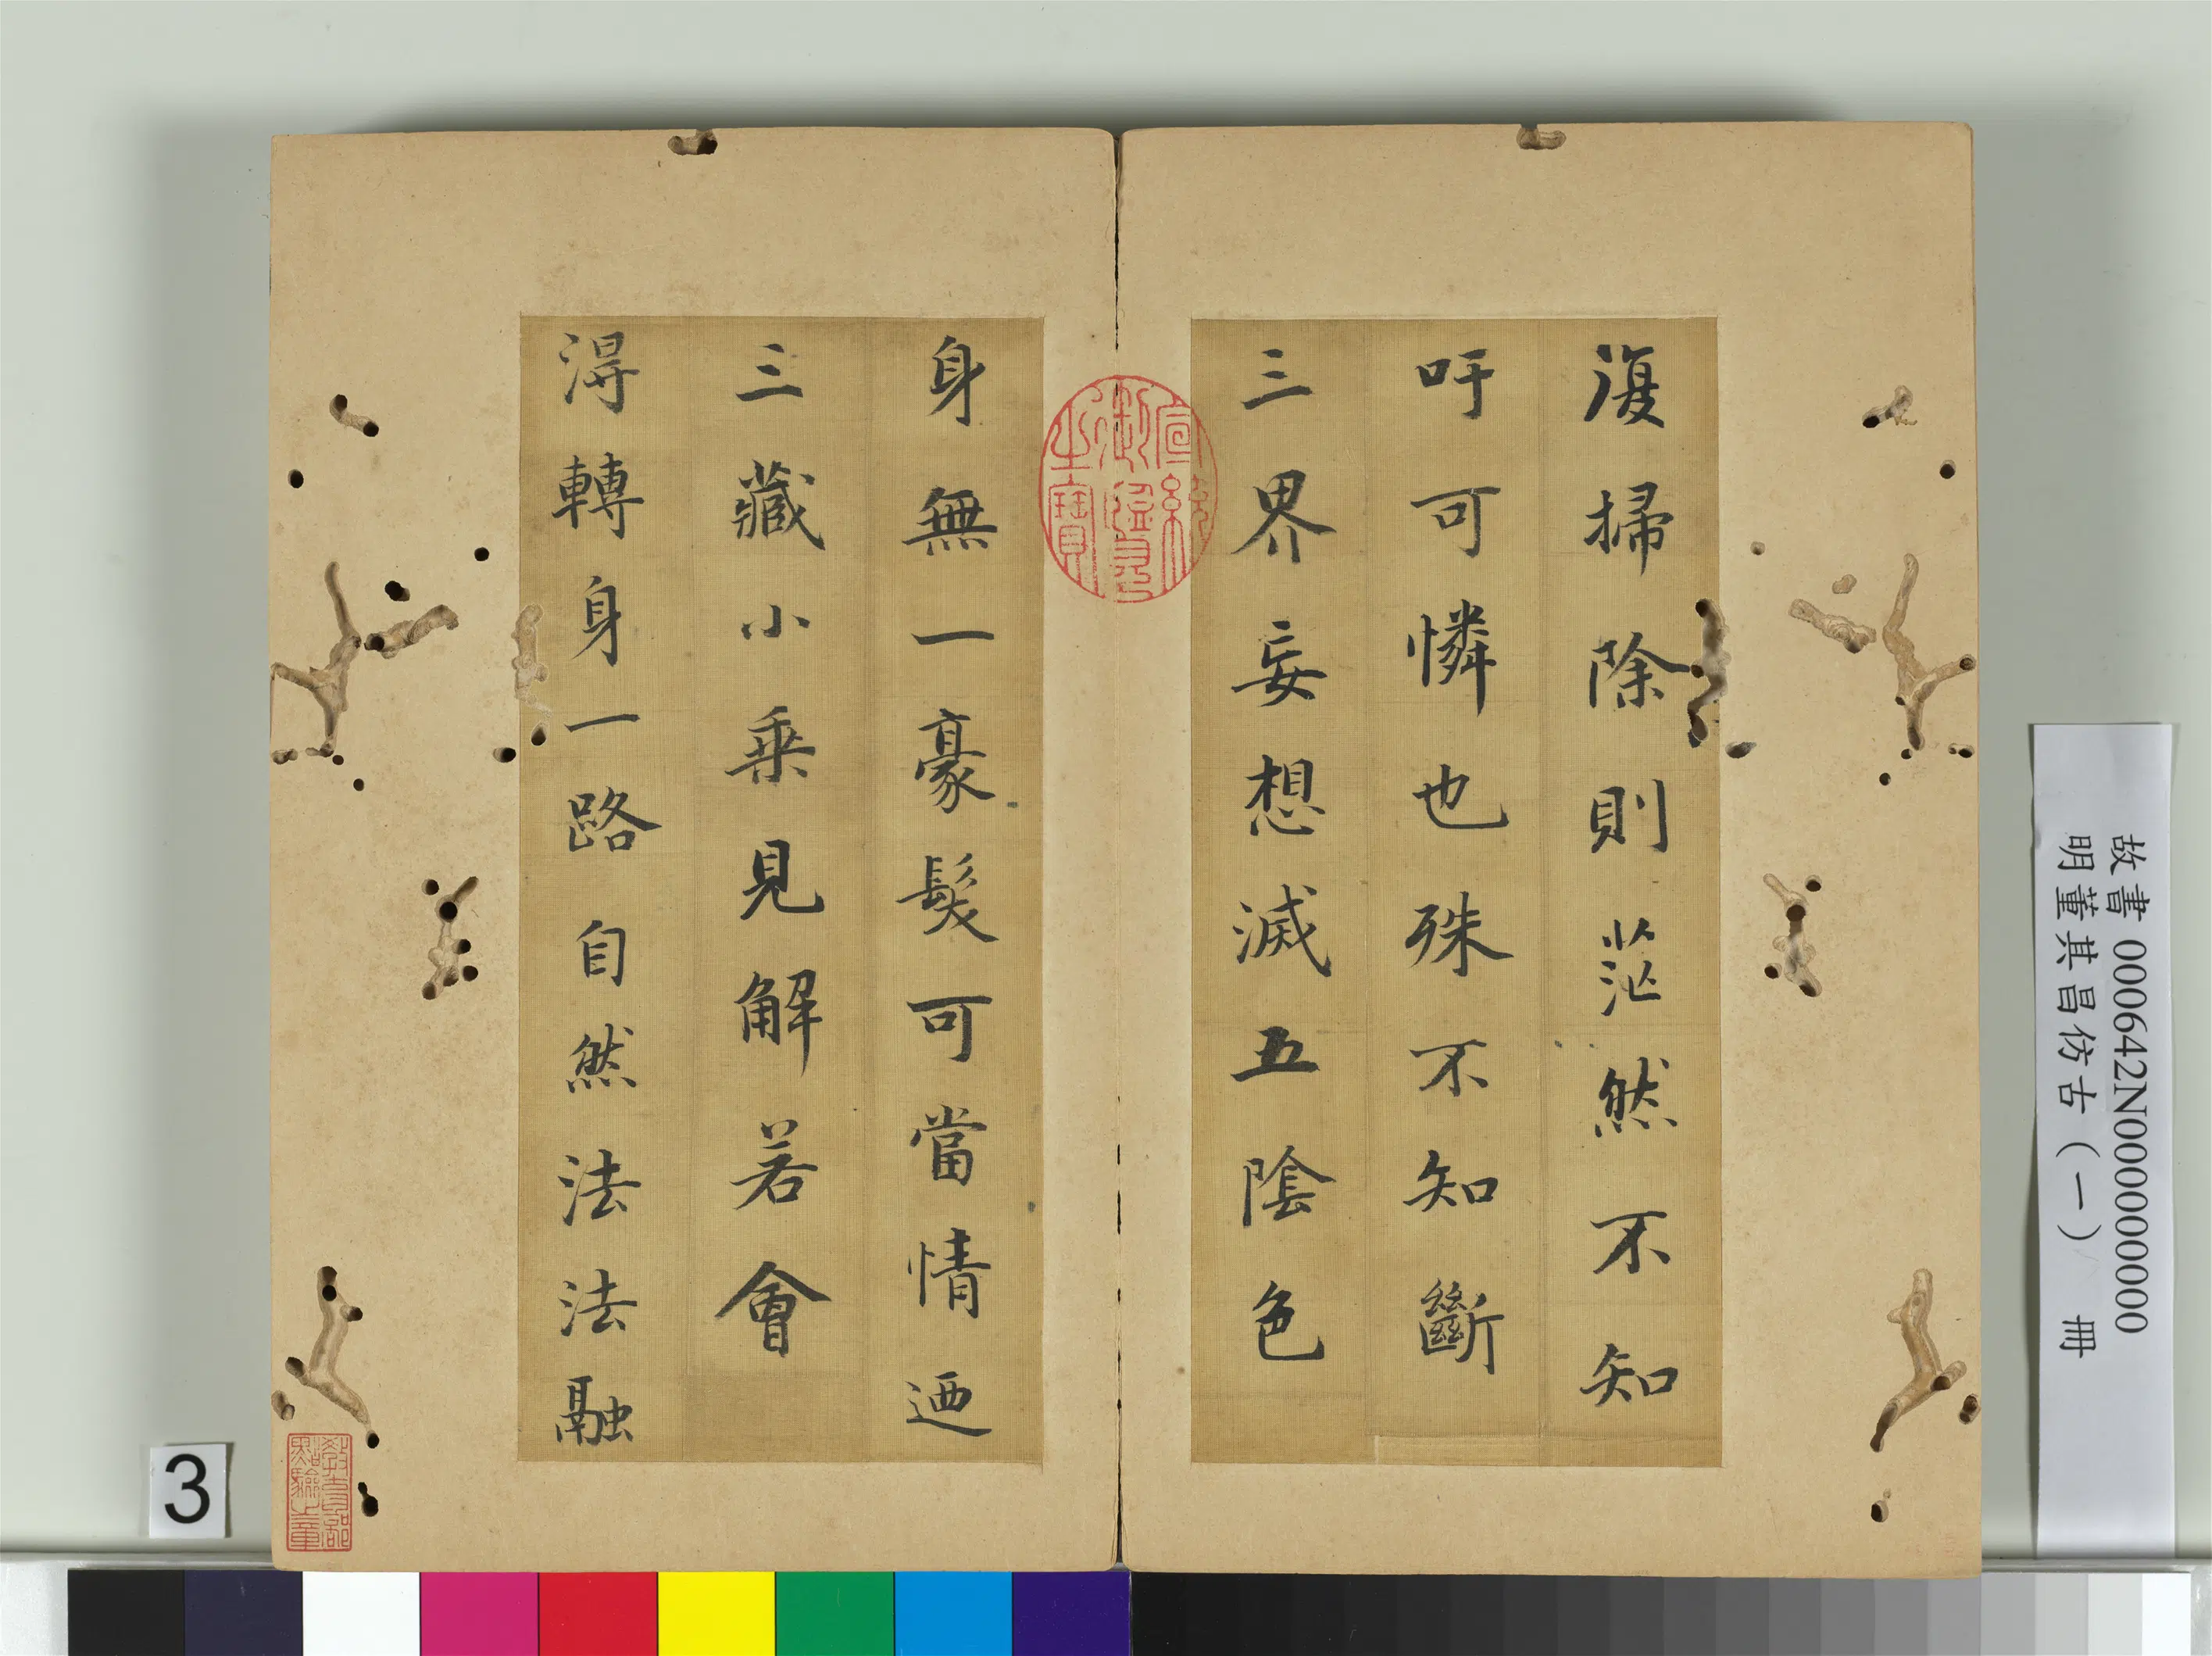 復掃除則茫然不知
吁可憐也殊不知斷
三界妄想滅五陰色
身無一豪髮可當情迺
三藏小乘見解若會
得轉身一路自然法法融
宣統御覽之寶
教育部點驗之章
故書 000642N000000000
明董其昌仿古（一） 冊
3